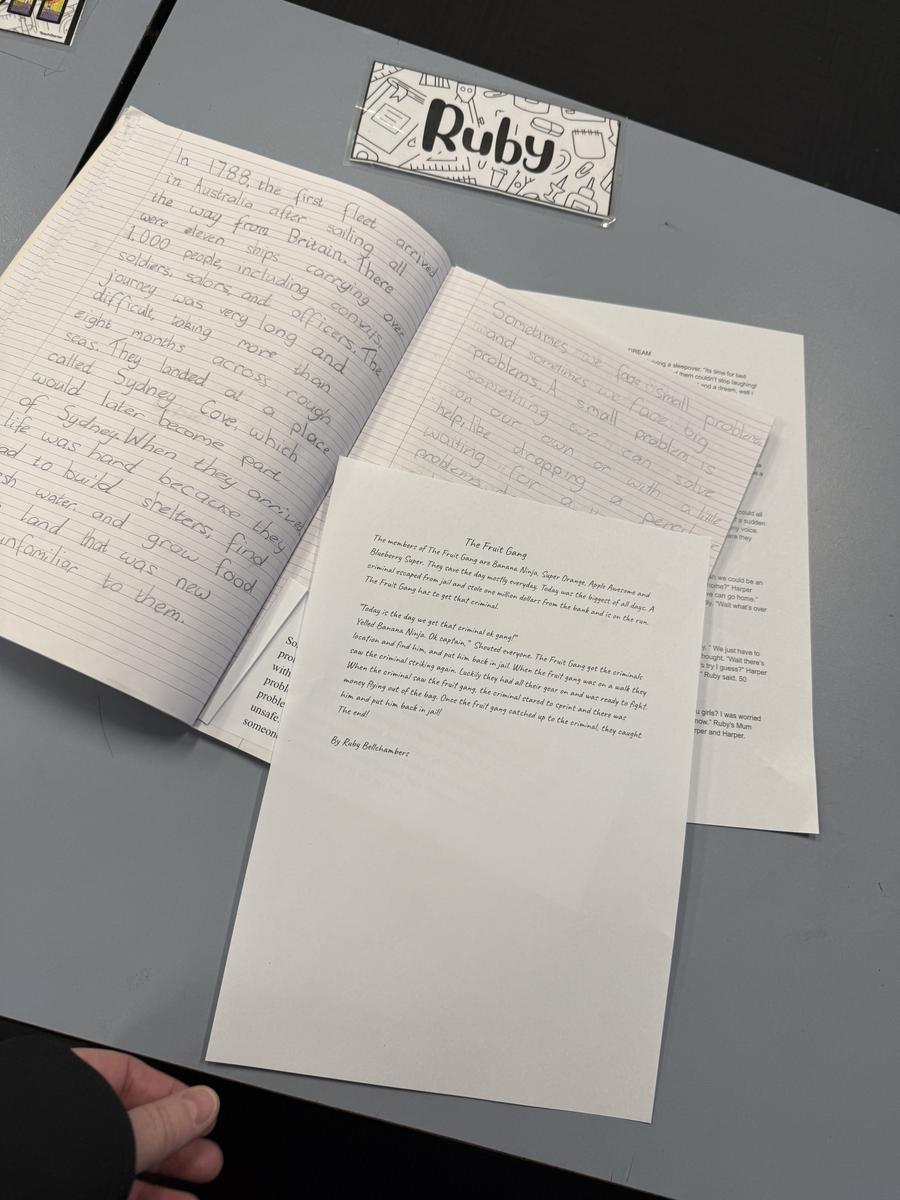 Ruby
In 1788, the first fleet arrived
in Australia after sailing all
the way from Britain. There
were eleven ships carrying over
1.000 people, including convits,
soldiers, salors, and officers. The
journey was very long and
difficult, taking more than
eight months across rough
seas. They landed at a place
called Sydney Cove, which
would later become part
of Sydney. When they arrived
life was hard because they
ad to build shelters, find
esh water and grow food
land that was new
infamiliar to them.
Sometimes we face small problems
and sometimes we face big
problems. A small problem is
something we can solve
on our own or with a little
help, like dropping a pencil
waiting for a
problems
So
pro
with
probl
proble
unsafe.
someone
The Fruit Gang
The members of The Fruit Gang are Banana Ninja, Super Orange, Apple Awesome and
Blueberry Super. They save the day mostly everyday. Today was the biggest of all days. A
criminal escaped from jail and stole one million dollars from the bank and is on the run.
The Fruit Gang has to get that criminal.
"Today is the day we get that criminal ok gang!"
Yelled Banana Ninja. Ok captain," Shouted everyone. The Fruit Gang got the criminals
location and find him, and put him back in jail. When the fruit gang was on a walk they
saw the criminal striking again. Luckily they had all their gear on and was ready to fight.
When the criminal saw the fruit gang, the criminal stared to sprint and there was
money flying out of the bag. Once the fruit gang catched up to the criminal, they caught
him and put him back in jail!
The end!
By Ruby Bellchambers
DREAM
ng a sleepover. "Its time for bed
f them couldn't stop laughing!
and a dream, well I
could all
a sudden
ny voice.
ere they
sh we could be an
home?" Harper
we can go home."
ly. "Wait what's over
y." We just have to
hought. "Wait there's
s try I guess?" Harper
" Ruby said. 50
u girls? I was worried
now." Ruby's Mum
rper and Harper.